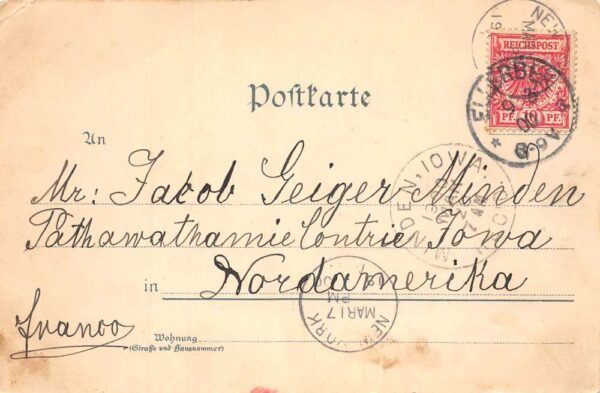 REICHSPOST
10
PF. 10 PF.
Postkarte
An
Mr: Jacob Geiger-Minden
Pathawathamie Contrie, Iowa
in Nordamerika
Franco
Wohnung
(Straße und Hausnummer)
MINDEN, IOWA
NEW YORK
MAR 17
PM